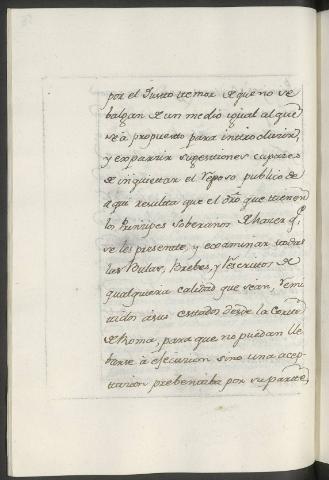 por el Justo temor de que no se
balgan de un medio igual al que
se á propuesto para introducir,
y exparcir sugestiones capaces
de inquietar el reposo publico de
aqui resulta que el dro que tienen
los Principes Soberanos de hacer qe
se les presente, y examinar todas
las Bulas, Brebes, y rescritos de
qualquiera calidad que sean, remi
tidos á sus estados desde la Corte
de Roma, para que no puedan lle
barse á efecucion sino una acep
tacion prebenciba por su parte,